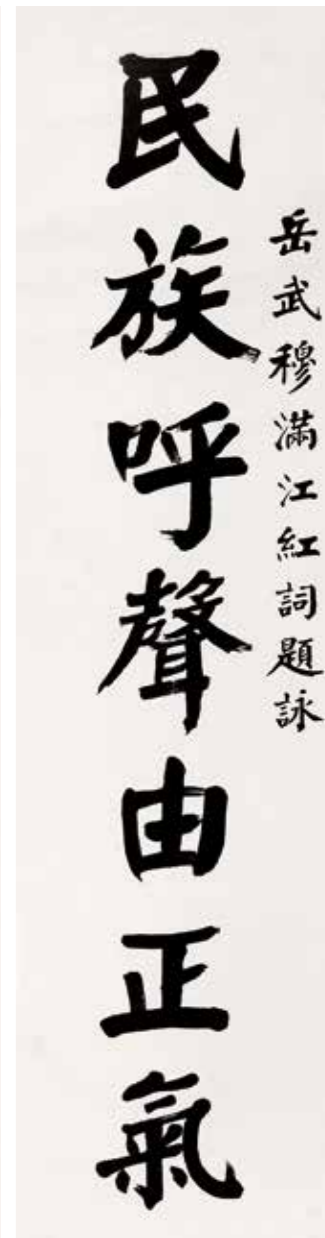 岳武穆滿江紅詞題詠
民族呼聲由正氣